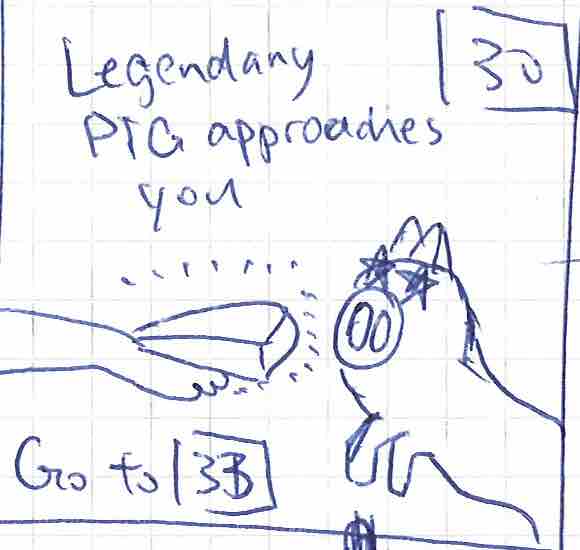 30
Legendary
PIG approaches
you
Go to